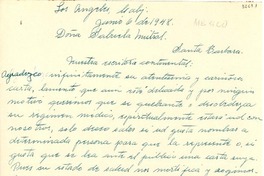 Los Angeles, Calif.
Junio 6 de 1948.
Doña Gabriela Mistral.
Santa Barbara.
Nuestra escritora continental:
Agradezco infinitamente su atentísima y cariñosa
carta, lamento que aun esté delicada y por ningun
motivo queremos que se quebrante, o descuide
su régimen medico, espiritualmente estará ud. con
nosotros, solo deseo saber si ud gusta nombrar a
determinada persona para que la represente o si
gusta que se lea ante el publico una carta suya.
Pues su estado de salud nos mortifica y